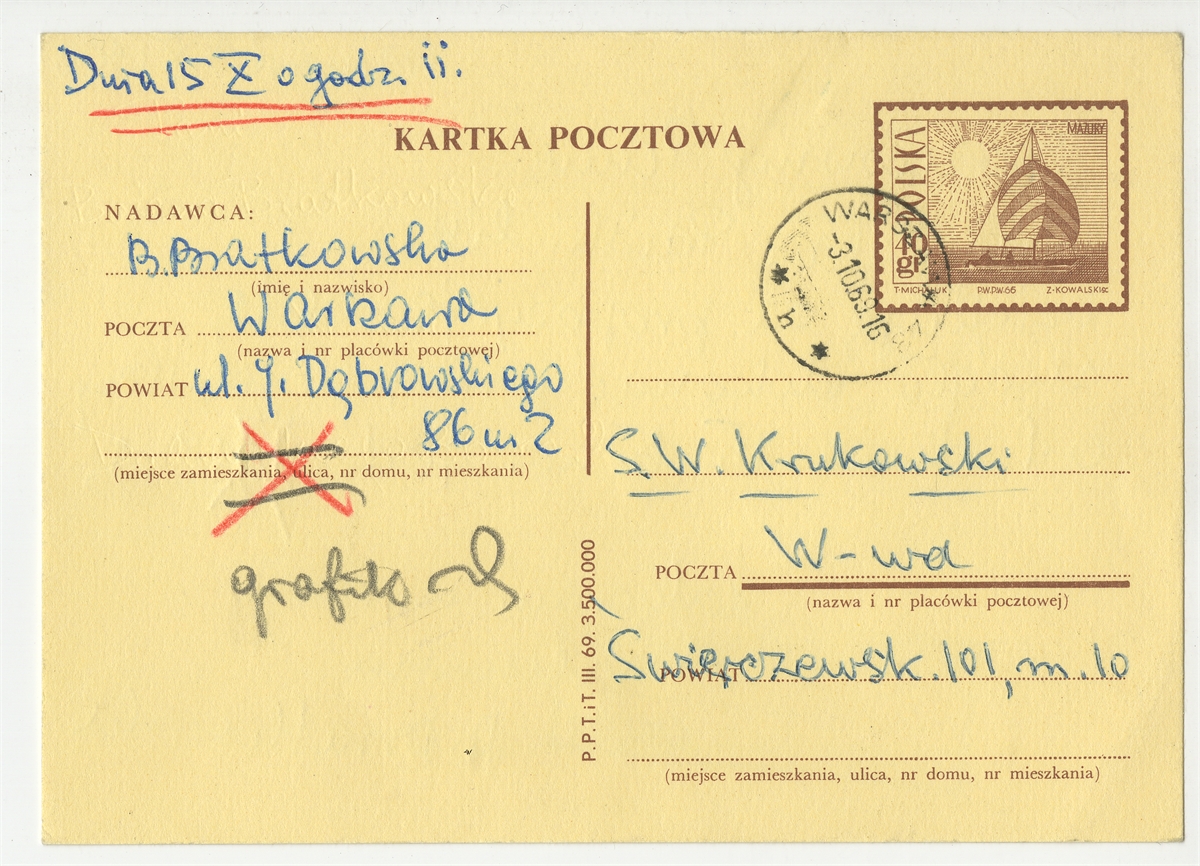 Dnia 15 X o godz. 11.
KARTKA POCZTOWA
NADAWCA:
B. Bratkowska
(imię i nazwisko)
POCZTA Warszawa
(nazwa i nr placówki pocztowej)
POWIAT ul. J. Dąbrowskiego
86 m 2
(miejsce zamieszkania, ulica, nr domu, nr mieszkania)
MAZURY
POLSKA
40
gr
T·MICHALUK P.W.P.W.65 Z·KOWALSKI sc
WARSZAWA
-3.10.69.16
h
S. W. Krukowski
POCZTA W-wa
(nazwa i nr placówki pocztowej)
POWIAT Świerczewsk. 101, m. 10
(miejsce zamieszkania, ulica, nr domu, nr mieszkania)
P.P.T.iT. III. 69. 3.500.000